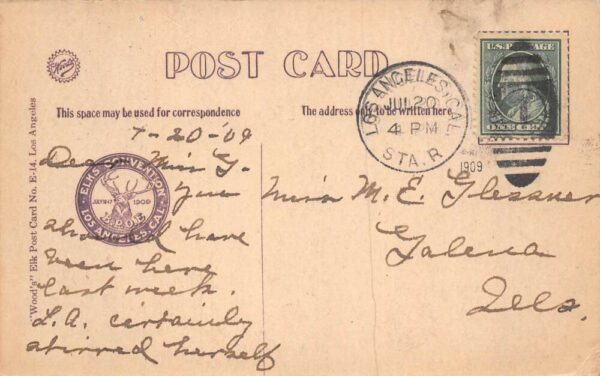 Woods
POST CARD
U.S. POSTAGE
ONE CENT
LOS ANGELES, CAL.
JUL 20
4 PM
STA. R
1909
This space may be used for correspondence
The address only to be written here
"Wood's" Elk Post Card No. E-14. Los Angeles
7-20-09
Dear Miss G.
You
should have
been here
last week.
L.A. certainly
stirred herself
ELKS CONVENTION
1909
B.P.O.E.
LOS ANGELES, CAL.
Miss M. E. Glessner
Galena
Ills.